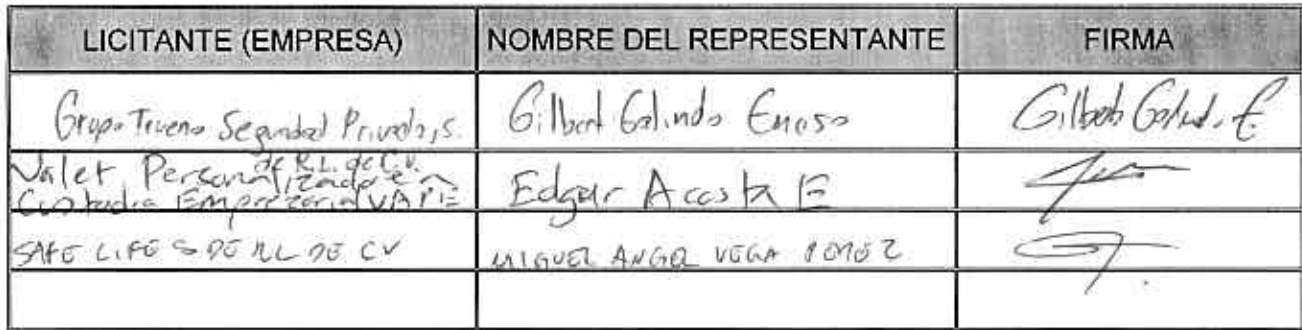 LICITANTE (EMPRESA) NOMBRE DEL REPRESENTANTE FIRMA
Grupo Trueno Seguridad Privada, S. Gilberto Galindo Gilberto Galindo E.
de R.L. de C.V.
Valet Personalizado e
Custodia Empresarial VAPE Edgar Acosta E
SAFE LIFE S DE RL DE CV MIGUEL ANGEL VEGA PEREZ